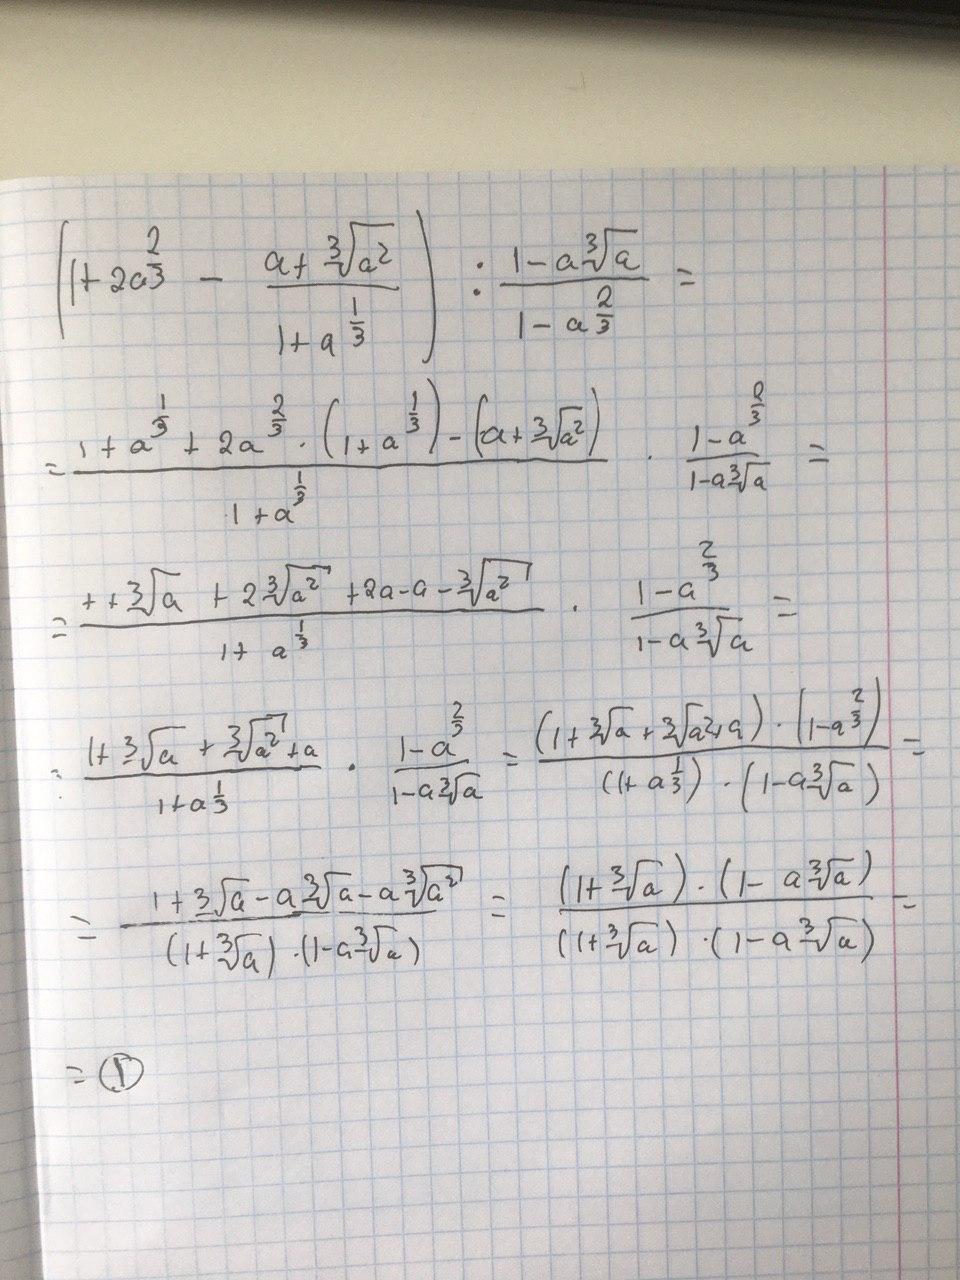 (1+2a^{2/3} - (a+∛a²)/(1+a^{1/3})) : (1-a∛a)/(1-a^{2/3}) =
= (1+a^{1/3}+2a^{2/3}·(1+a^{1/3})-(a+∛a²))/(1+a^{1/3}) · (1-a^{2/3})/(1-a∛a) =
= (++∛a+2∛a²+2a-a-∛a²)/(1+a^{1/3}) · (1-a^{2/3})/(1-a∛a) =
= (1+∛a+∛a²+a)/(1+a^{1/3}) · (1-a^{2/3})/(1-a∛a) = ((1+∛a+∛a²+a)·(1-a^{2/3}))/((1+a^{1/3})·(1-a∛a)) =
= (1+∛a-a∛a-a∛a²)/((1+∛a)·(1-a∛a)) = ((1+∛a)·(1-a∛a))/((1+∛a)·(1-a∛a)) =
= 1